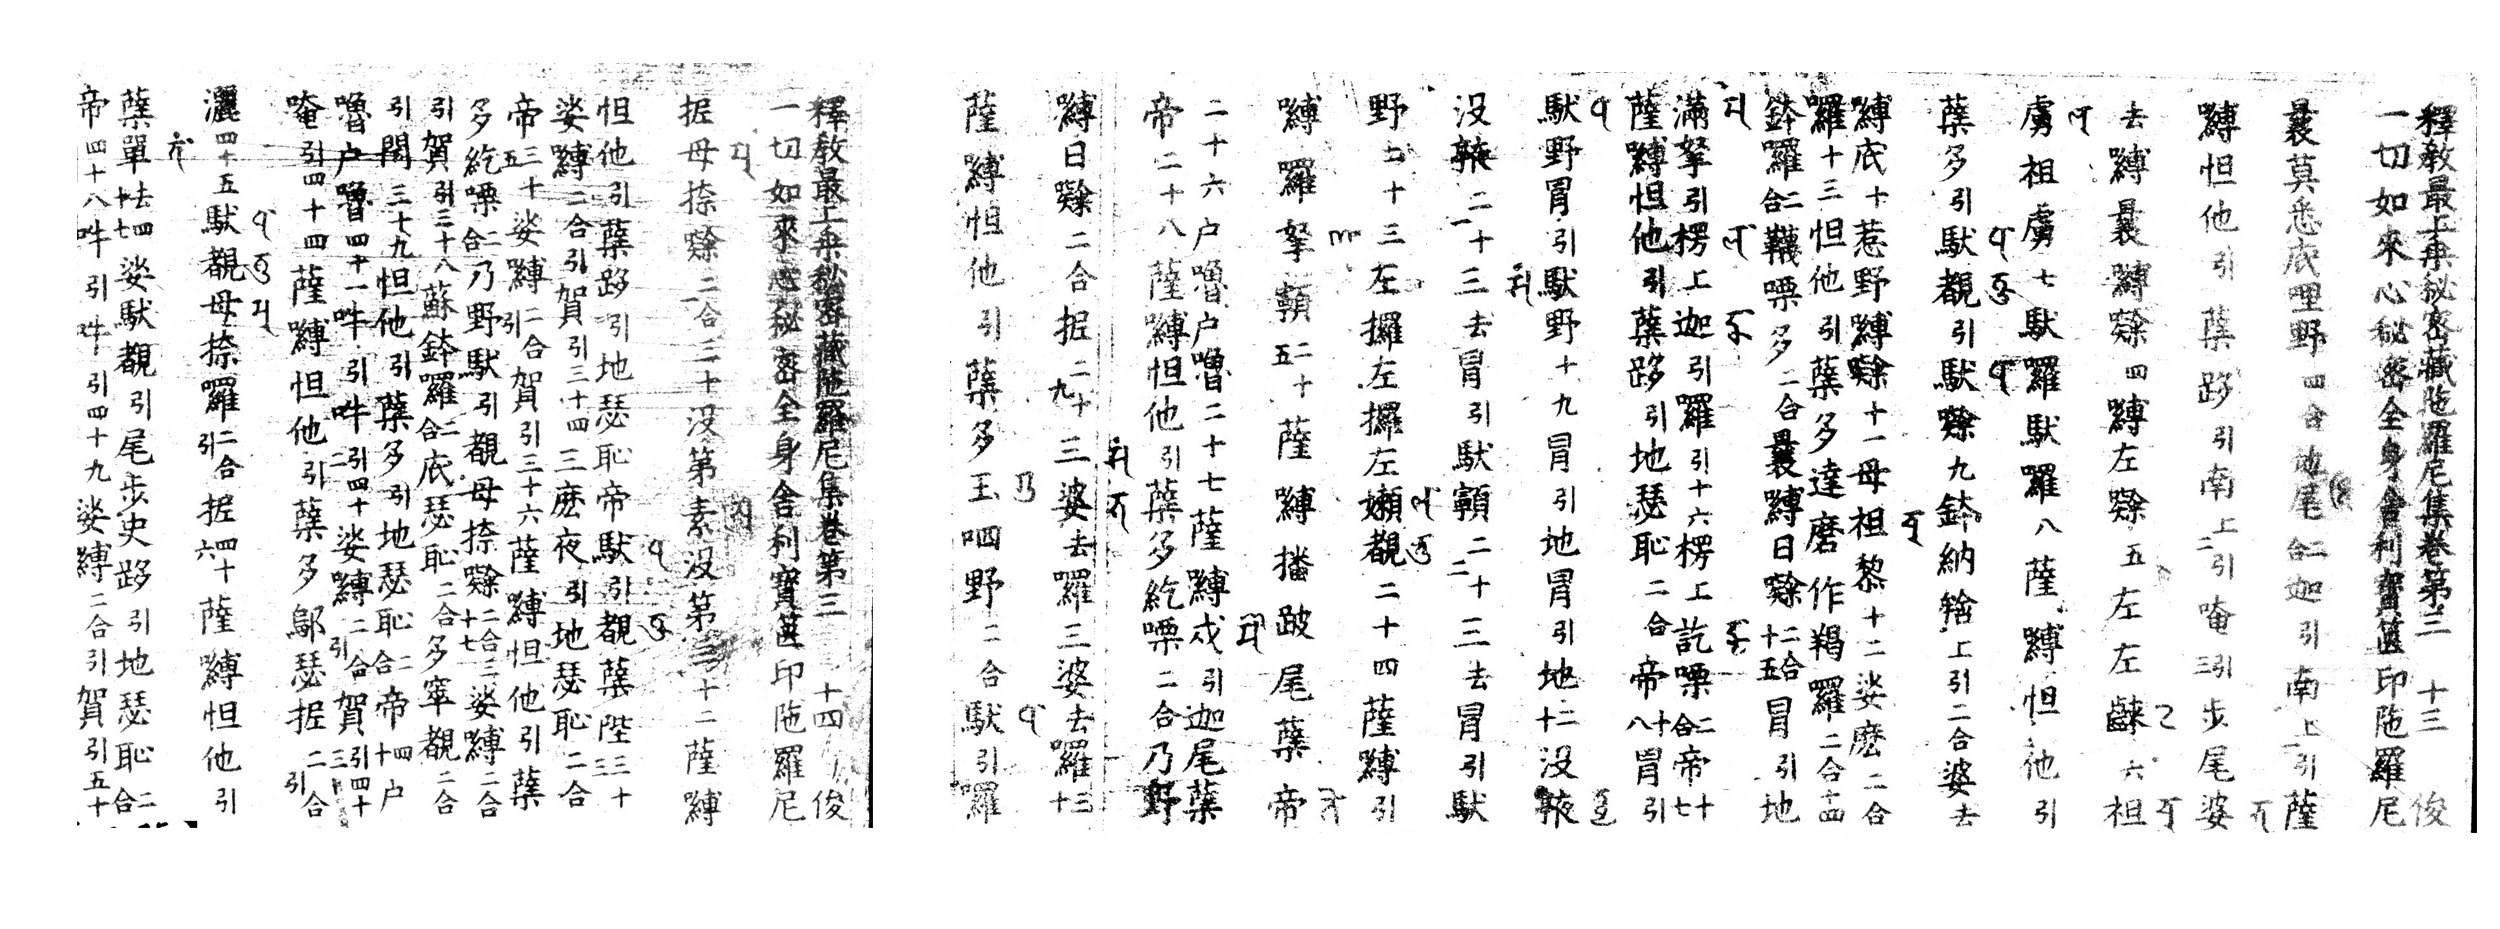 釋教最上乗秘密藏陁羅尼集卷第三 十三 俊
一切如來心秘密全身舍利寳篋印陁羅尼
曩莫悉底哩野四合地尾二合迦引南上引一薩
嚩怛他引蘖跢引南上引二唵引三步尾婆
去嚩曩嚩𪘨四嚩左𪘨五左左𪘨六祖
虜祖虜七馱羅馱羅八薩嚩怛他引
蘖多引馱覩引馱𪘨九鉢納𤚥上引二合婆去
嚩底十惹野嚩𪘨十一母祖黎十二娑麼二合
羅十三怛他引蘖多達磨作羯羅二合十四
鉢羅二合韈㗚多二合曩嚩日𪘨二合十五冒引地
滿拏引楞上迦引羅引十六楞上訖㗚二合帝十七
薩嚩怛他引蘖跢引地瑟恥二合帝十八冒引
馱野冒引馱野十九冒引地冒引地二十没𩕳
没𩕳二十一三去冒引馱顊二十二三去冒引馱
野二十三左攞左攞左嬾覩二十四薩嚩引
嚩羅拏顊二十五薩嚩播跛尾蘖帝
二十六户嚕户嚕二十七薩嚩戍引迦尾蘖
帝二十八薩嚩怛他引蘖多紇㗚二合乃野
嚩日𪘨二合抳二十九三婆去羅三婆去羅三十
薩嚩怛他引蘖多玉呬野二合馱引羅
釋教最上乗秘密藏陁羅尼集卷第三 十四 俊
一切如來心秘密全身舍利寳篋印陁羅尼
抳母捺𪘨二合三十一没第素没第三十二薩嚩
怛他引蘖跢引地瑟恥帝馱引覩蘖陛三十三
娑嚩二合引賀引三十四三麽夜引地瑟恥二合
帝三十五娑嚩二合引賀引三十六薩嚩怛他引蘖
多紇㗚二合乃野馱引覩母捺𪘨二合三十七娑嚩二合
引賀引三十八蘇鉢羅二合底瑟恥二合多窣覩二合
引閇三十九怛他引蘖多引地瑟恥二合帝四十户
嚕户嚕四十一吽引吽引四十二娑嚩二合引賀引四十三
唵引四十四薩嚩怛他引蘖多鄔瑟抳二合引
灑四十五馱覩母捺囉二合引抳四十六薩嚩怛他引
蘖單去四十七娑馱覩引尾步史跢引地瑟恥二合
帝四十八吽引吽引四十九娑嚩二合引賀引五十